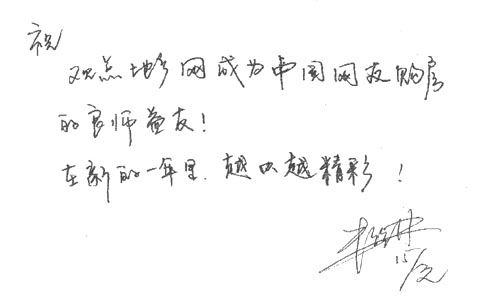 祝
观点地产网成为中国网友购房
的良师益友！
在新的一年里，越办越精彩！
15/